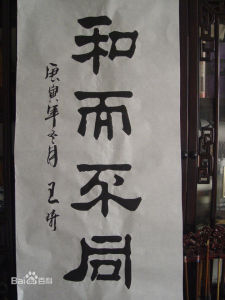 和而不同
庚寅年冬月
Bai百科